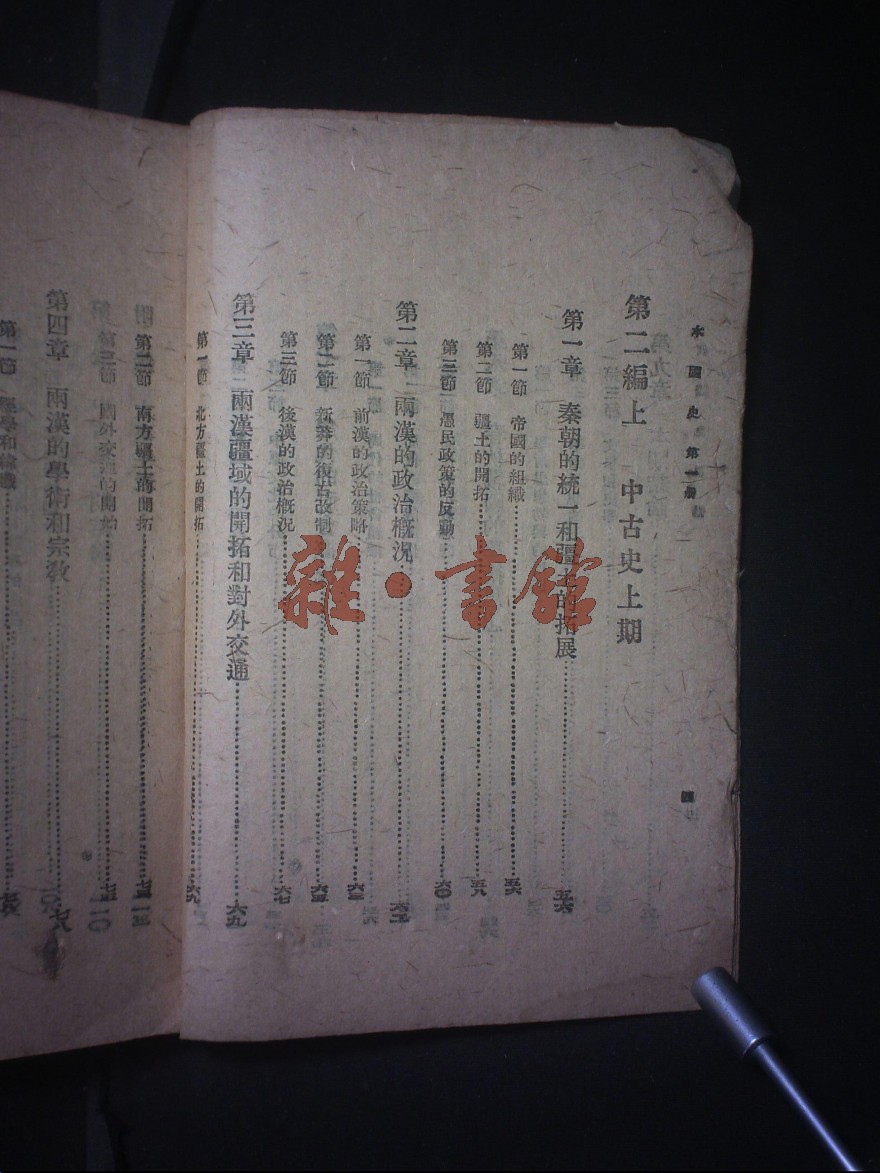 本國史 第一册
四
第二編上 中古史上期
第一章 秦朝的統一和疆土的拓展 五六
第一節 帝國的組織 五六
第二節 疆土的開拓 五八
第三節 愚民政策的反動 六〇
第二章 兩漢的政治概況
第一節 前漢的政治策略
第二節 新莽的復古改制 六五
第三節 後漢的政治概況 六七
第三章 兩漢疆域的開拓和對外交通 六九
第一節 北方疆土的開拓 六九
第二節 南方疆土的開拓
第三節 國外交通的開始
第四章 兩漢的學術和宗教 七八
第一節 經學和
雜·書館